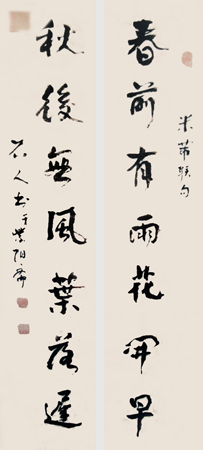 春前有雨花開早
米芾联句
秋後無風葉落遲
石人书于紫阳斋